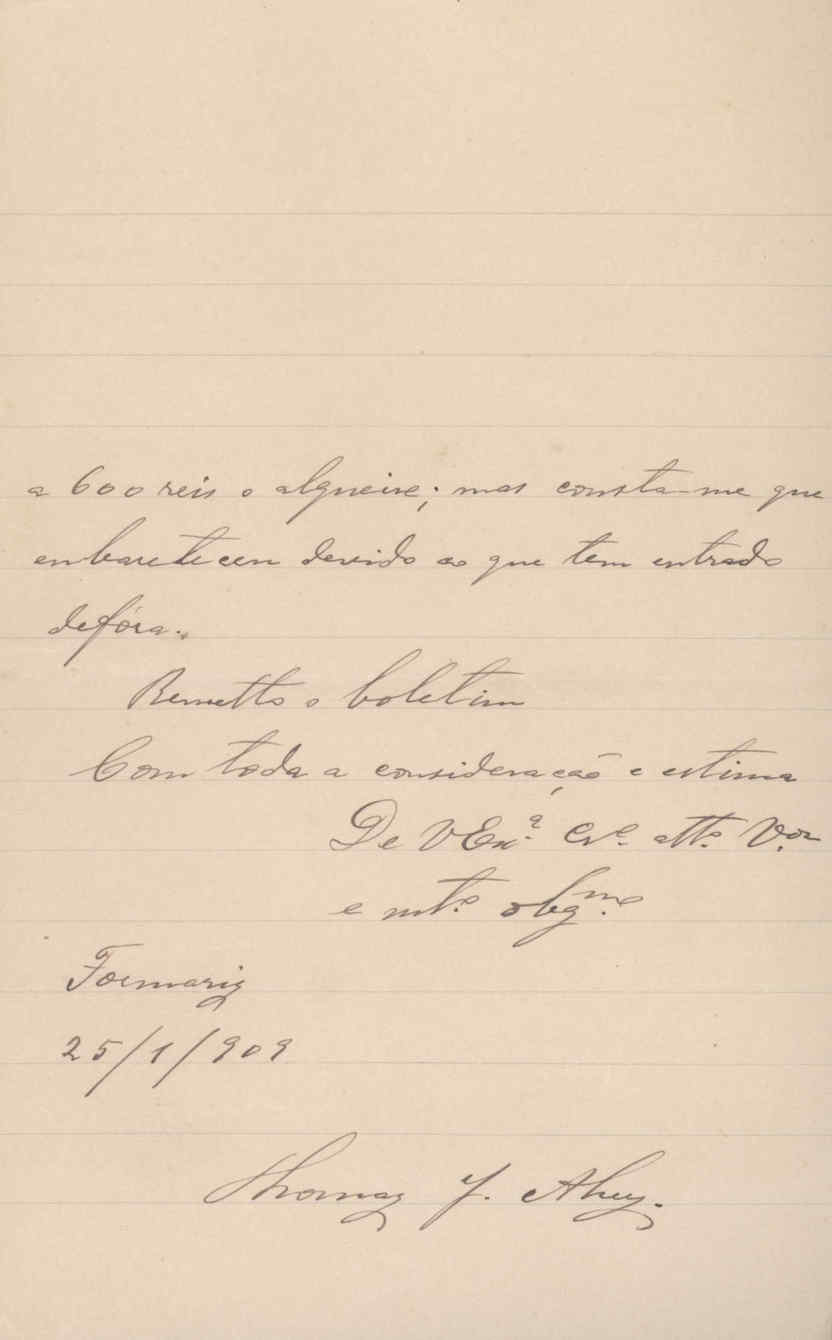 a 600 reis o alqueire; mas consta-me que
embaratecera devido ao que tem entrado
de fóra.
Remetto o boletim
Com toda a consideração e estima
De V Ex.ª Cr.º att.º V.ºr
e mt.º obg.mo
Formariz
25/1/909
Thomaz J.